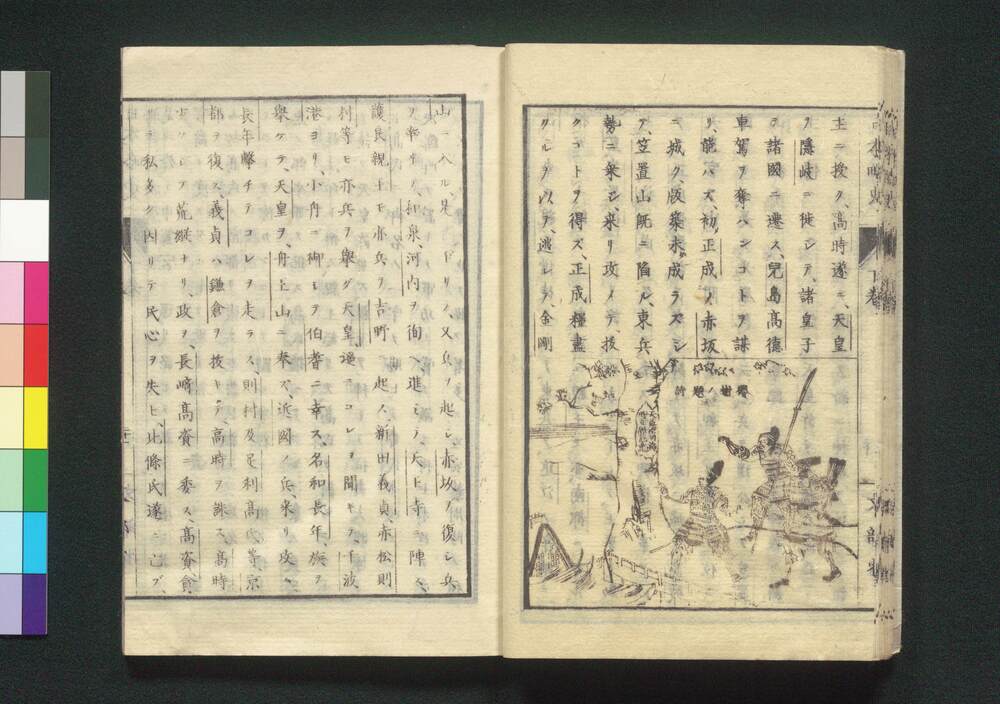 土ニ捘ク、高時遂ニ、天皇
ヲ隱岐ニ徙シテ、諸皇子
ヲ諸國ニ遷ス、兒島高德
車駕ヲ奪ハンコトヲ謀
リ、能ハズ、初、正成ノ赤坂
ニ城ク、版築未成ラズシ
テ、笠置山既ニ陷ル、東兵
勢ニ乘シ、來リ攻メテ、拔
クコトヲ得ズ、正成糧盡
クルヲ以テ、逃レテ、金剛
山ニ入ル、是ヨリ又兵ヲ起シ、赤坂ヲ復シ、兵
ヲ率テ、和泉、河内ヲ徇ヘ、進ミテ、天王寺ニ陣ス、
護良親王モ亦兵ヲ、吉野ニ起ス、新田義貞、赤松則
村等モ亦兵ヲ舉グ、天皇、邇ニコレヲ聞キテ、千波
港ヨリ、小舟ニ御シテ、伯耆ニ幸ス、名和長年、族ヲ
舉ケテ、天皇ヲ、舟上山ニ奉ズ、近國ノ兵、來リ攻ム、
長年擊チテコレヲ走ラス、則村及足利高氏等、京
都ヲ復ス、義貞ハ鎌倉ヲ拔キテ、高時ヲ誅ス、高時
荒縱ナリ、政ヲ、長崎高資ニ委ス、高資貪
私多ク、因リテ民心ヲ失ヒ、北條氏遂ニ亡ブ、
下卷
文部省